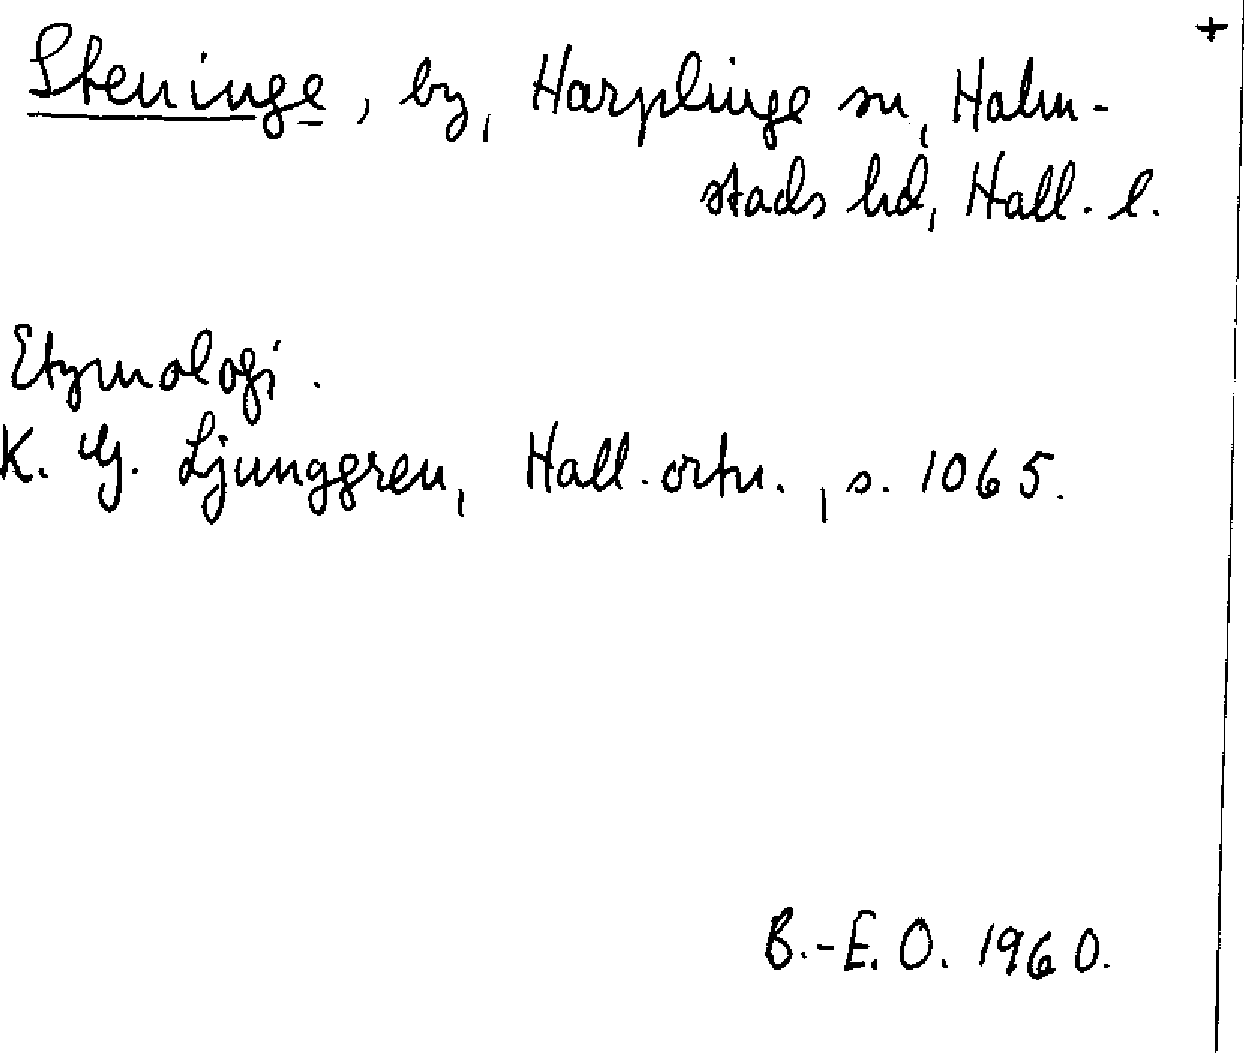 +
Steninge, by, Harplinge sn, Halm-
stads hd, Hall. l.
Etymologi.
K. G. Ljunggren, Hall. ortn., s. 1065.
B.-E. O. 1960.